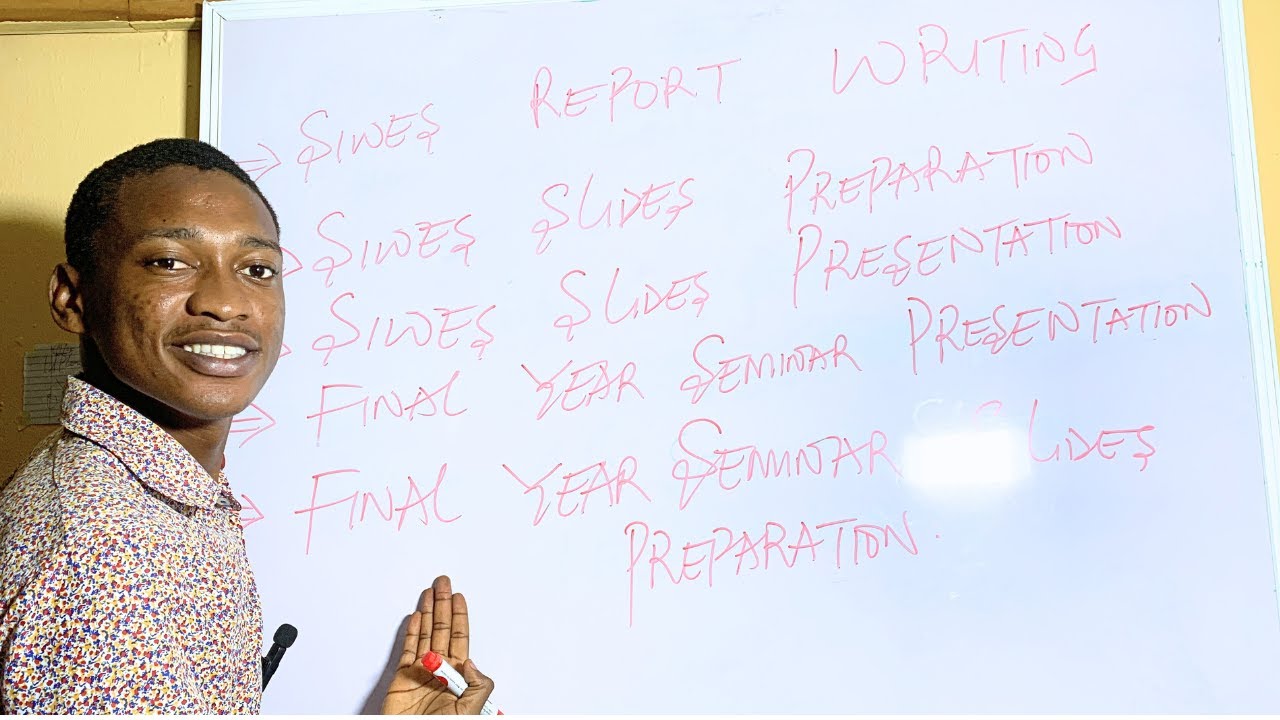 ⇒ SIWES REPORT WRITING
⇒ SIWES SLIDES PREPARATION
⇒ SIWES SLIDES PRESENTATION
⇒ FINAL YEAR SEMINAR PRESENTATION
⇒ FINAL YEAR SEMINAR SLIDES
PREPARATION.